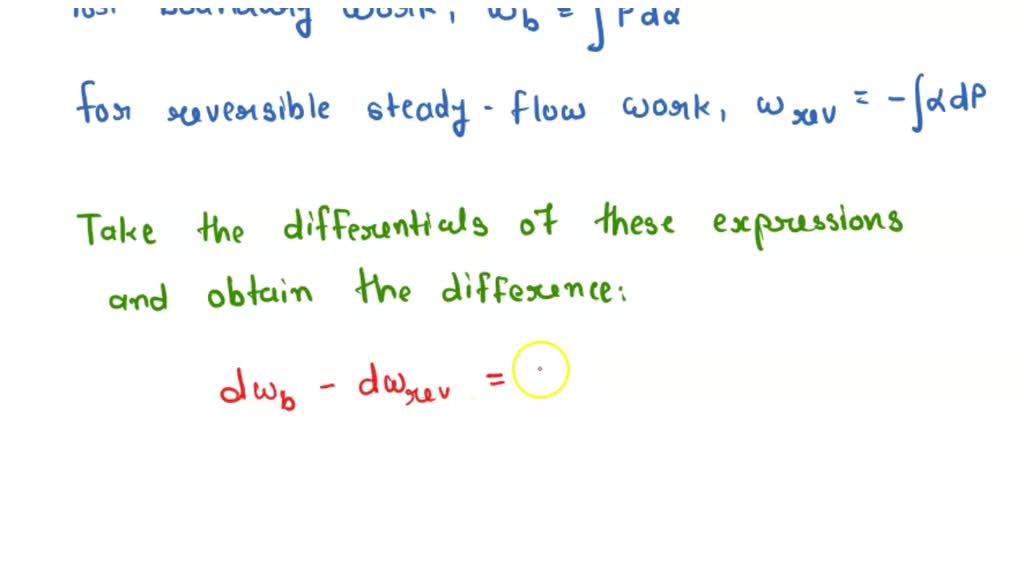 for boundary work, w_b = ∫ P dα
for reversible steady-flow work, w_rev = -∫αdP
Take the differentials of these expressions
and obtain the difference:
dw_b - dw_rev =